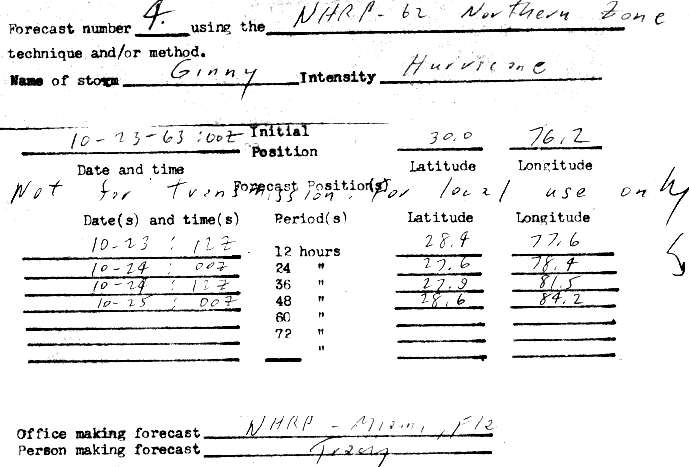 Forecast number 4. using the NHRP-62 Northern Zone
technique and/or method.
Name of storm Ginny Intensity Hurricane
10-23-63 :00Z Initial Position 30.0 76.2
Date and time Latitude Longitude
Forecast Position(s)
Not for transmission. For local use only
Date(s) and time(s) Period(s) Latitude Longitude
10-23 : 12Z 12 hours 28.4 77.6
10-24 : 00Z 24 " 27.6 78.4
10-24 : 12Z 36 " 27.9 81.5
10-25 : 00Z 48 " 28.6 84.2
60 "
72 "
"
Office making forecast NHRP - Miami, Fla
Person making forecast Tracy